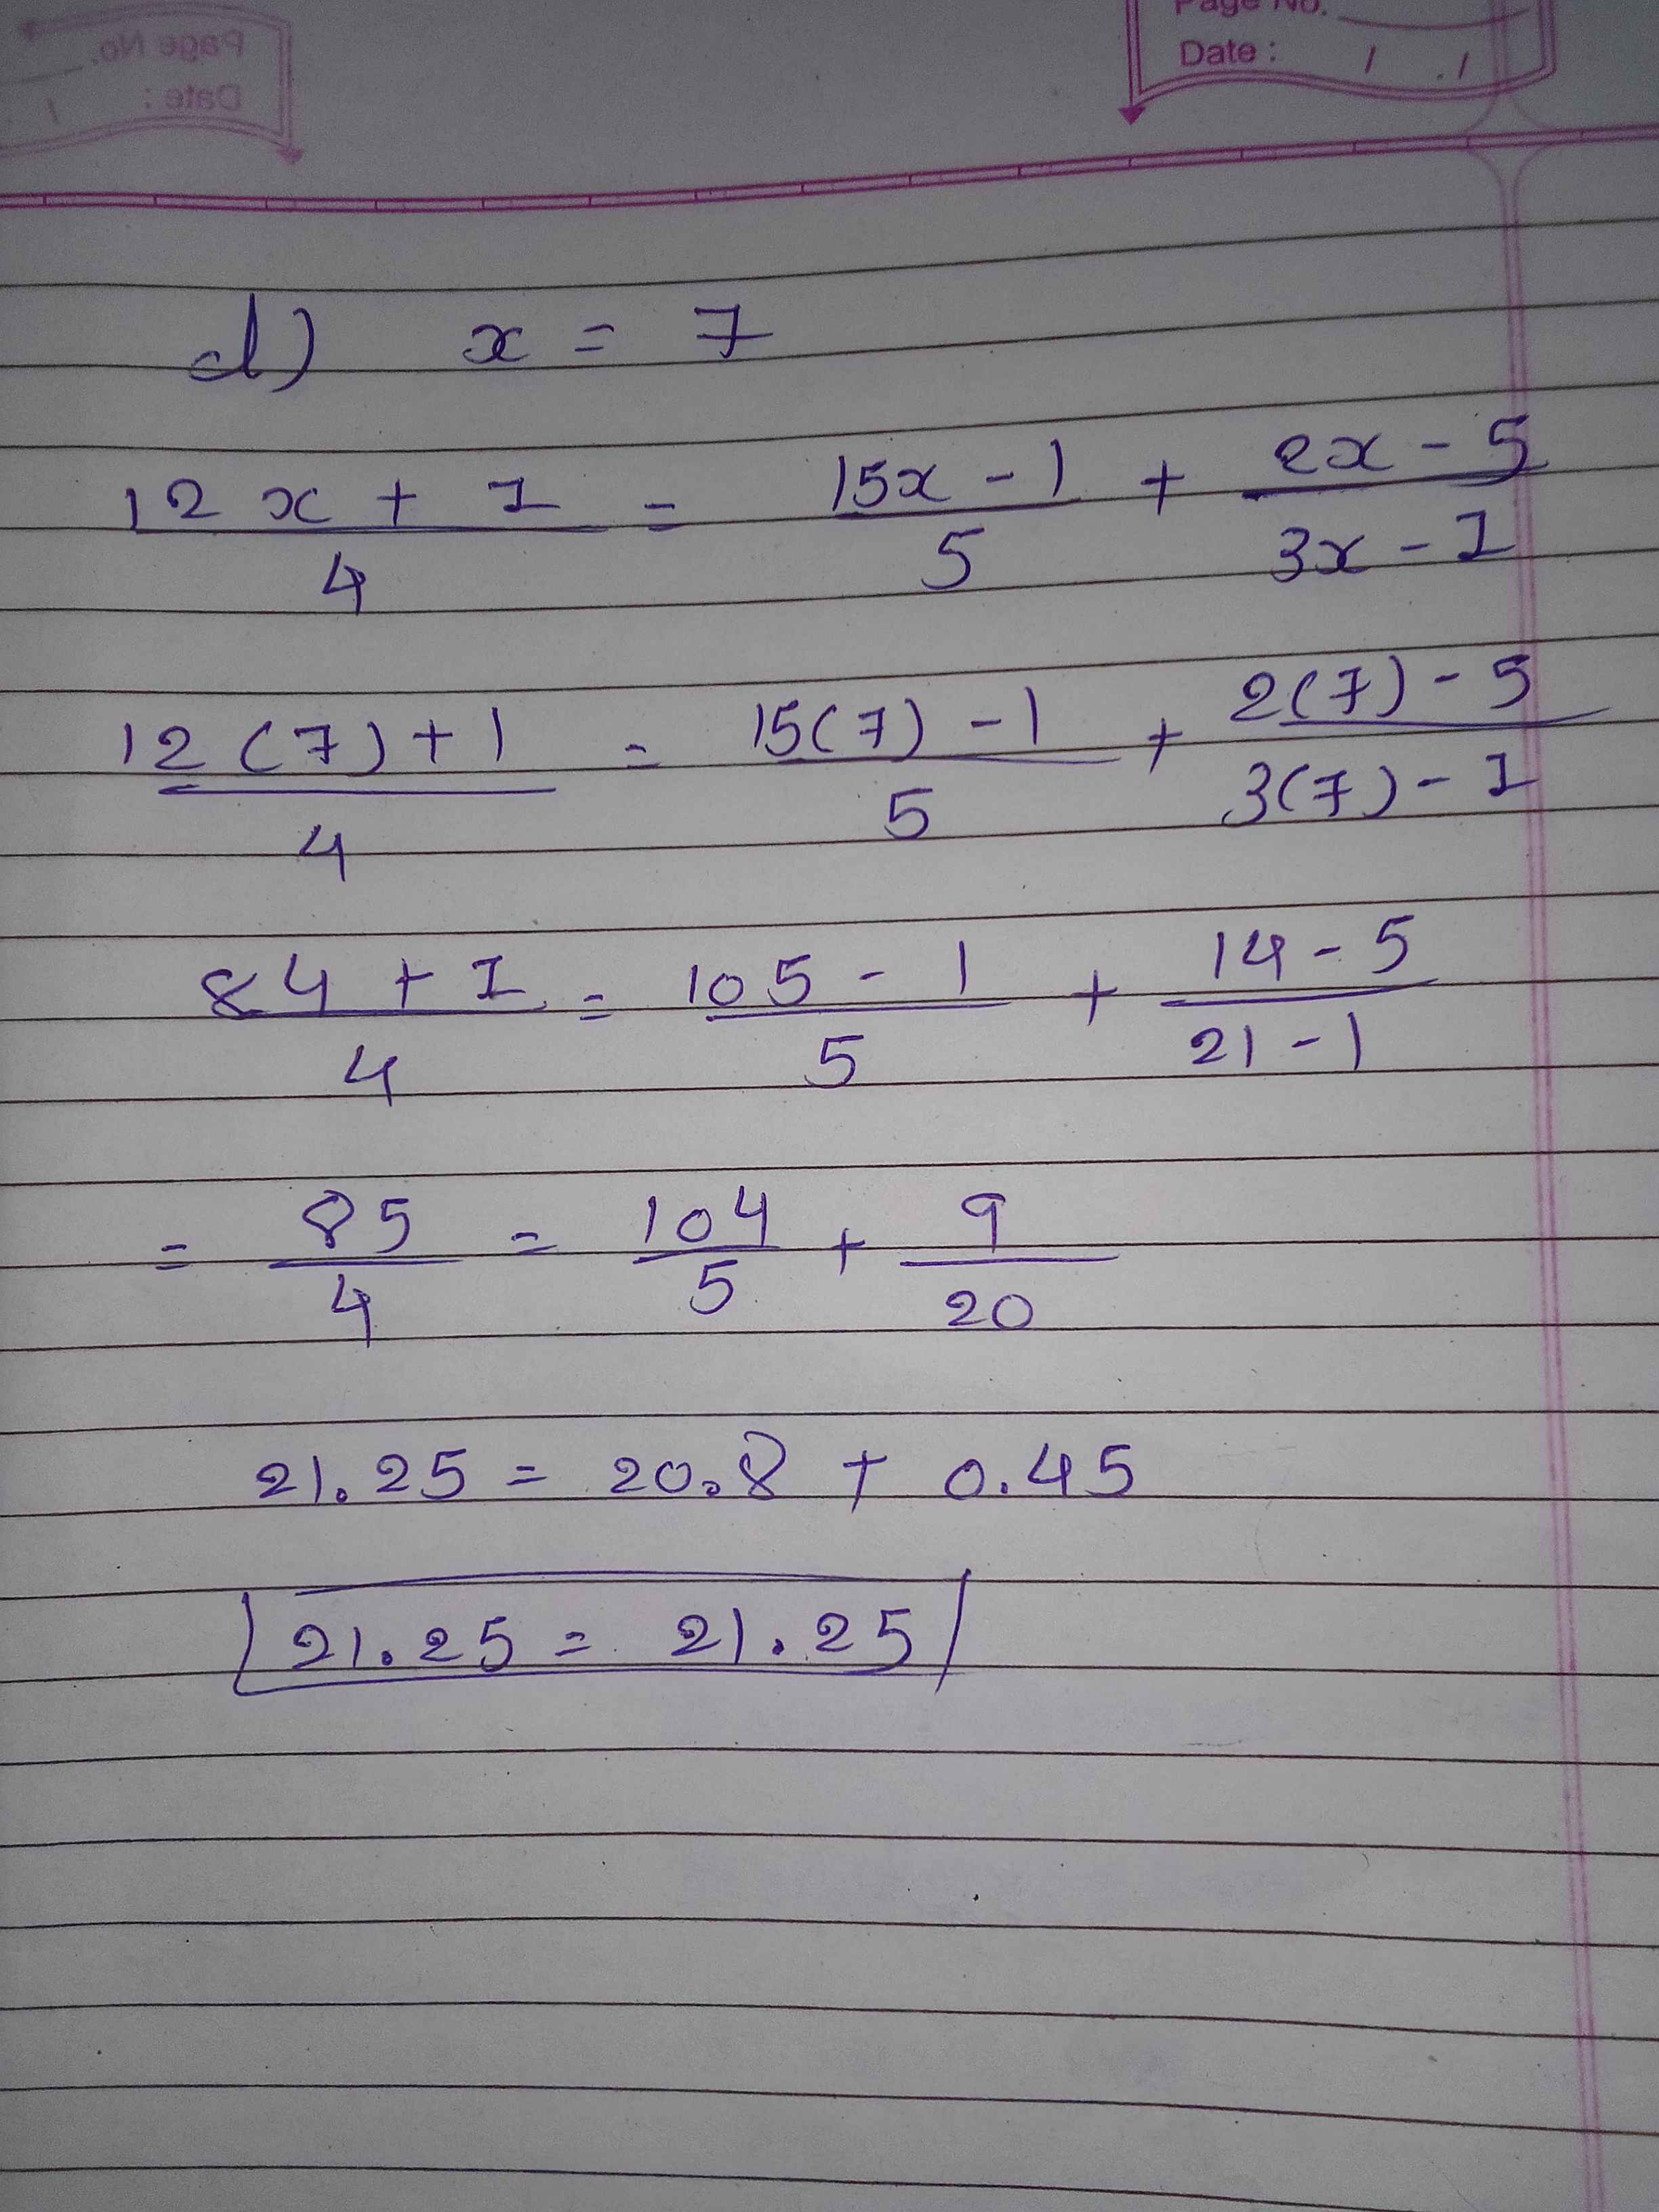 Page No.
Date : / /
Page No.
Date : /
d) x = 7
12x + 1 / 4 = 15x - 1 / 5 + 2x - 5 / 3x - 1
12(7) + 1 / 4 = 15(7) - 1 / 5 + 2(7) - 5 / 3(7) - 1
84 + 1 / 4 = 105 - 1 / 5 + 14 - 5 / 21 - 1
= 85 / 4 = 104 / 5 + 9 / 20
21.25 = 20.8 + 0.45
21.25 = 21.25